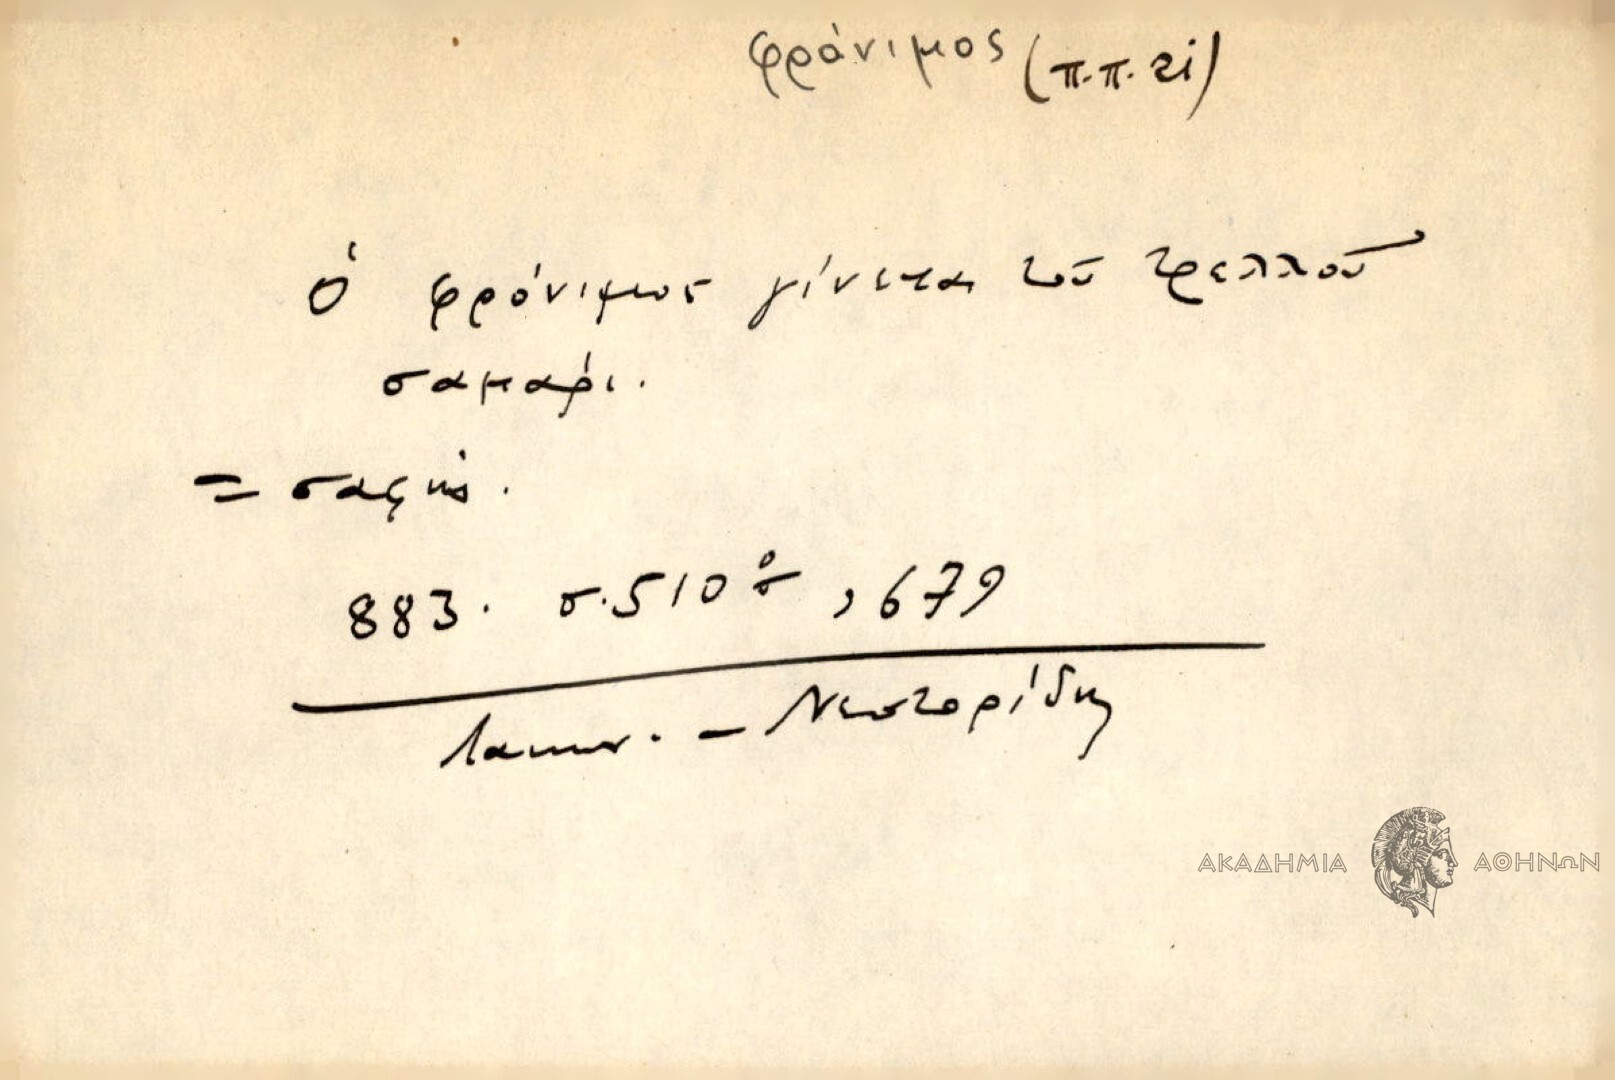 φρόνιμος (π.π. 2i)
Ὁ φρόνιμος γίνεται τοῦ τρελλοῦ
σαμάρι.
= σαφής.
883. σ. 510 , 679
Λακων. - Νεστορίδης
ΑΚΑΔΗΜΙΑ ΑΘΗΝΩΝ